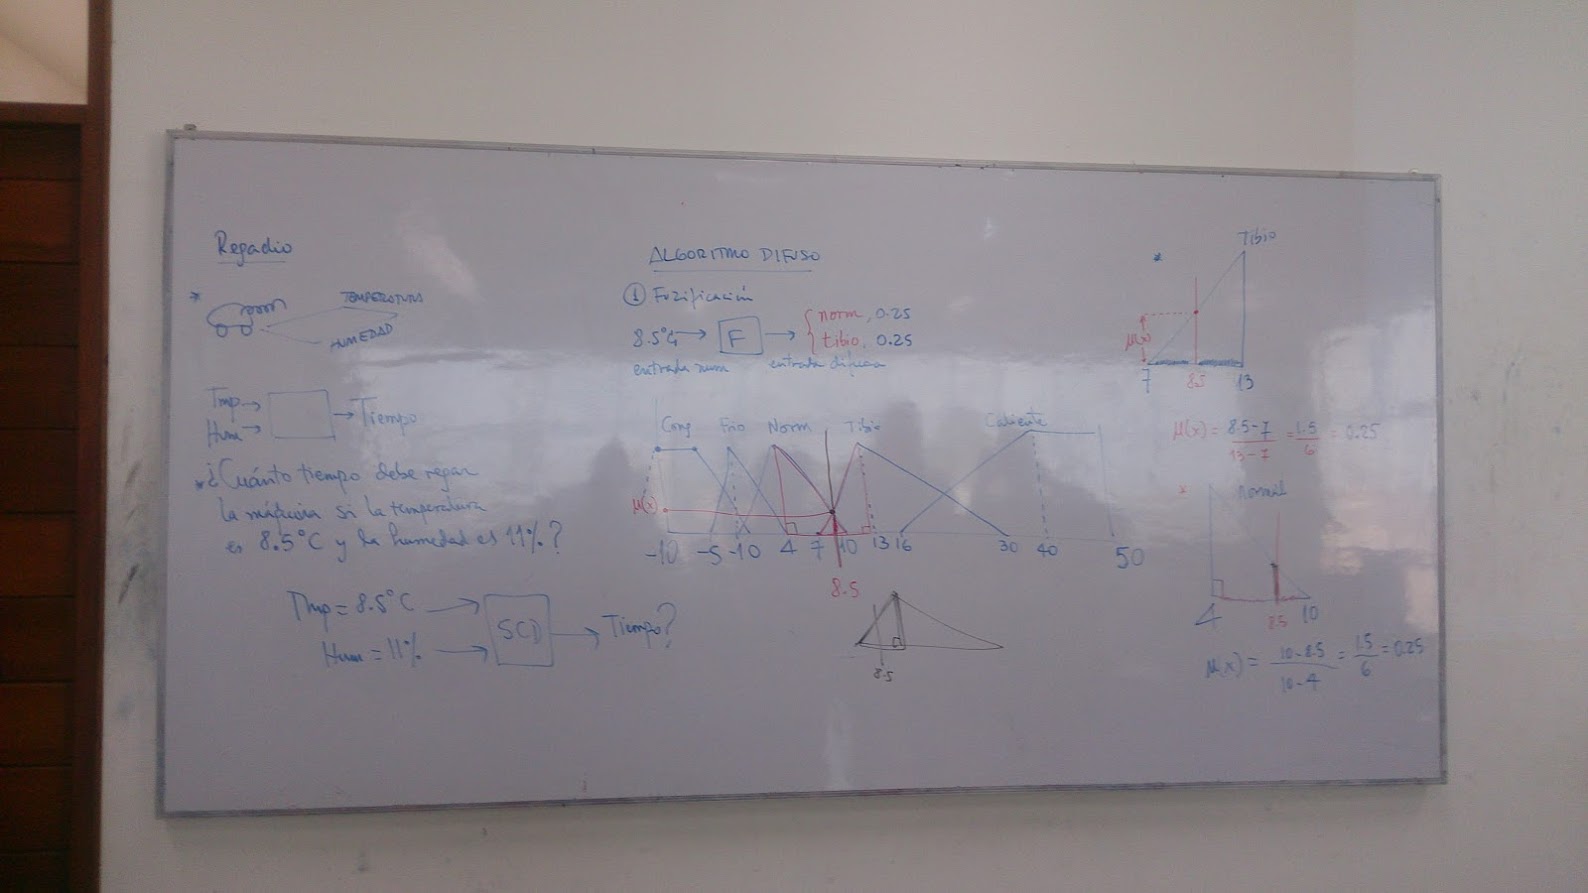 Regadio
*
TEMPERATURA
HUMEDAD
Tmp
Hum
Tiempo
* ¿Cuánto tiempo debe regar
la máquina si la temperatura
es 8.5°C y la humedad es 11%?
Tmp = 8.5°C
Hum = 11%
SCD
Tiempo?
ALGORITMO DIFUSO
① Fuzificación
8.5°C
F
norm, 0.25
tibio, 0.25
entrada num
entrada difusa
Cong Frio Norm Tibio Caliente
μ(x)
-10 -5 -10 4 7 10 13 16 30 40 50
8.5
8.5
*
Tibio
μ(x)
7 8.5 13
μ(x) = 8.5-7 / 13-7 = 1.5 / 6 = 0.25
*
Normal
4 8.5 10
μ(x) = 10-8.5 / 10-4 = 1.5 / 6 = 0.25